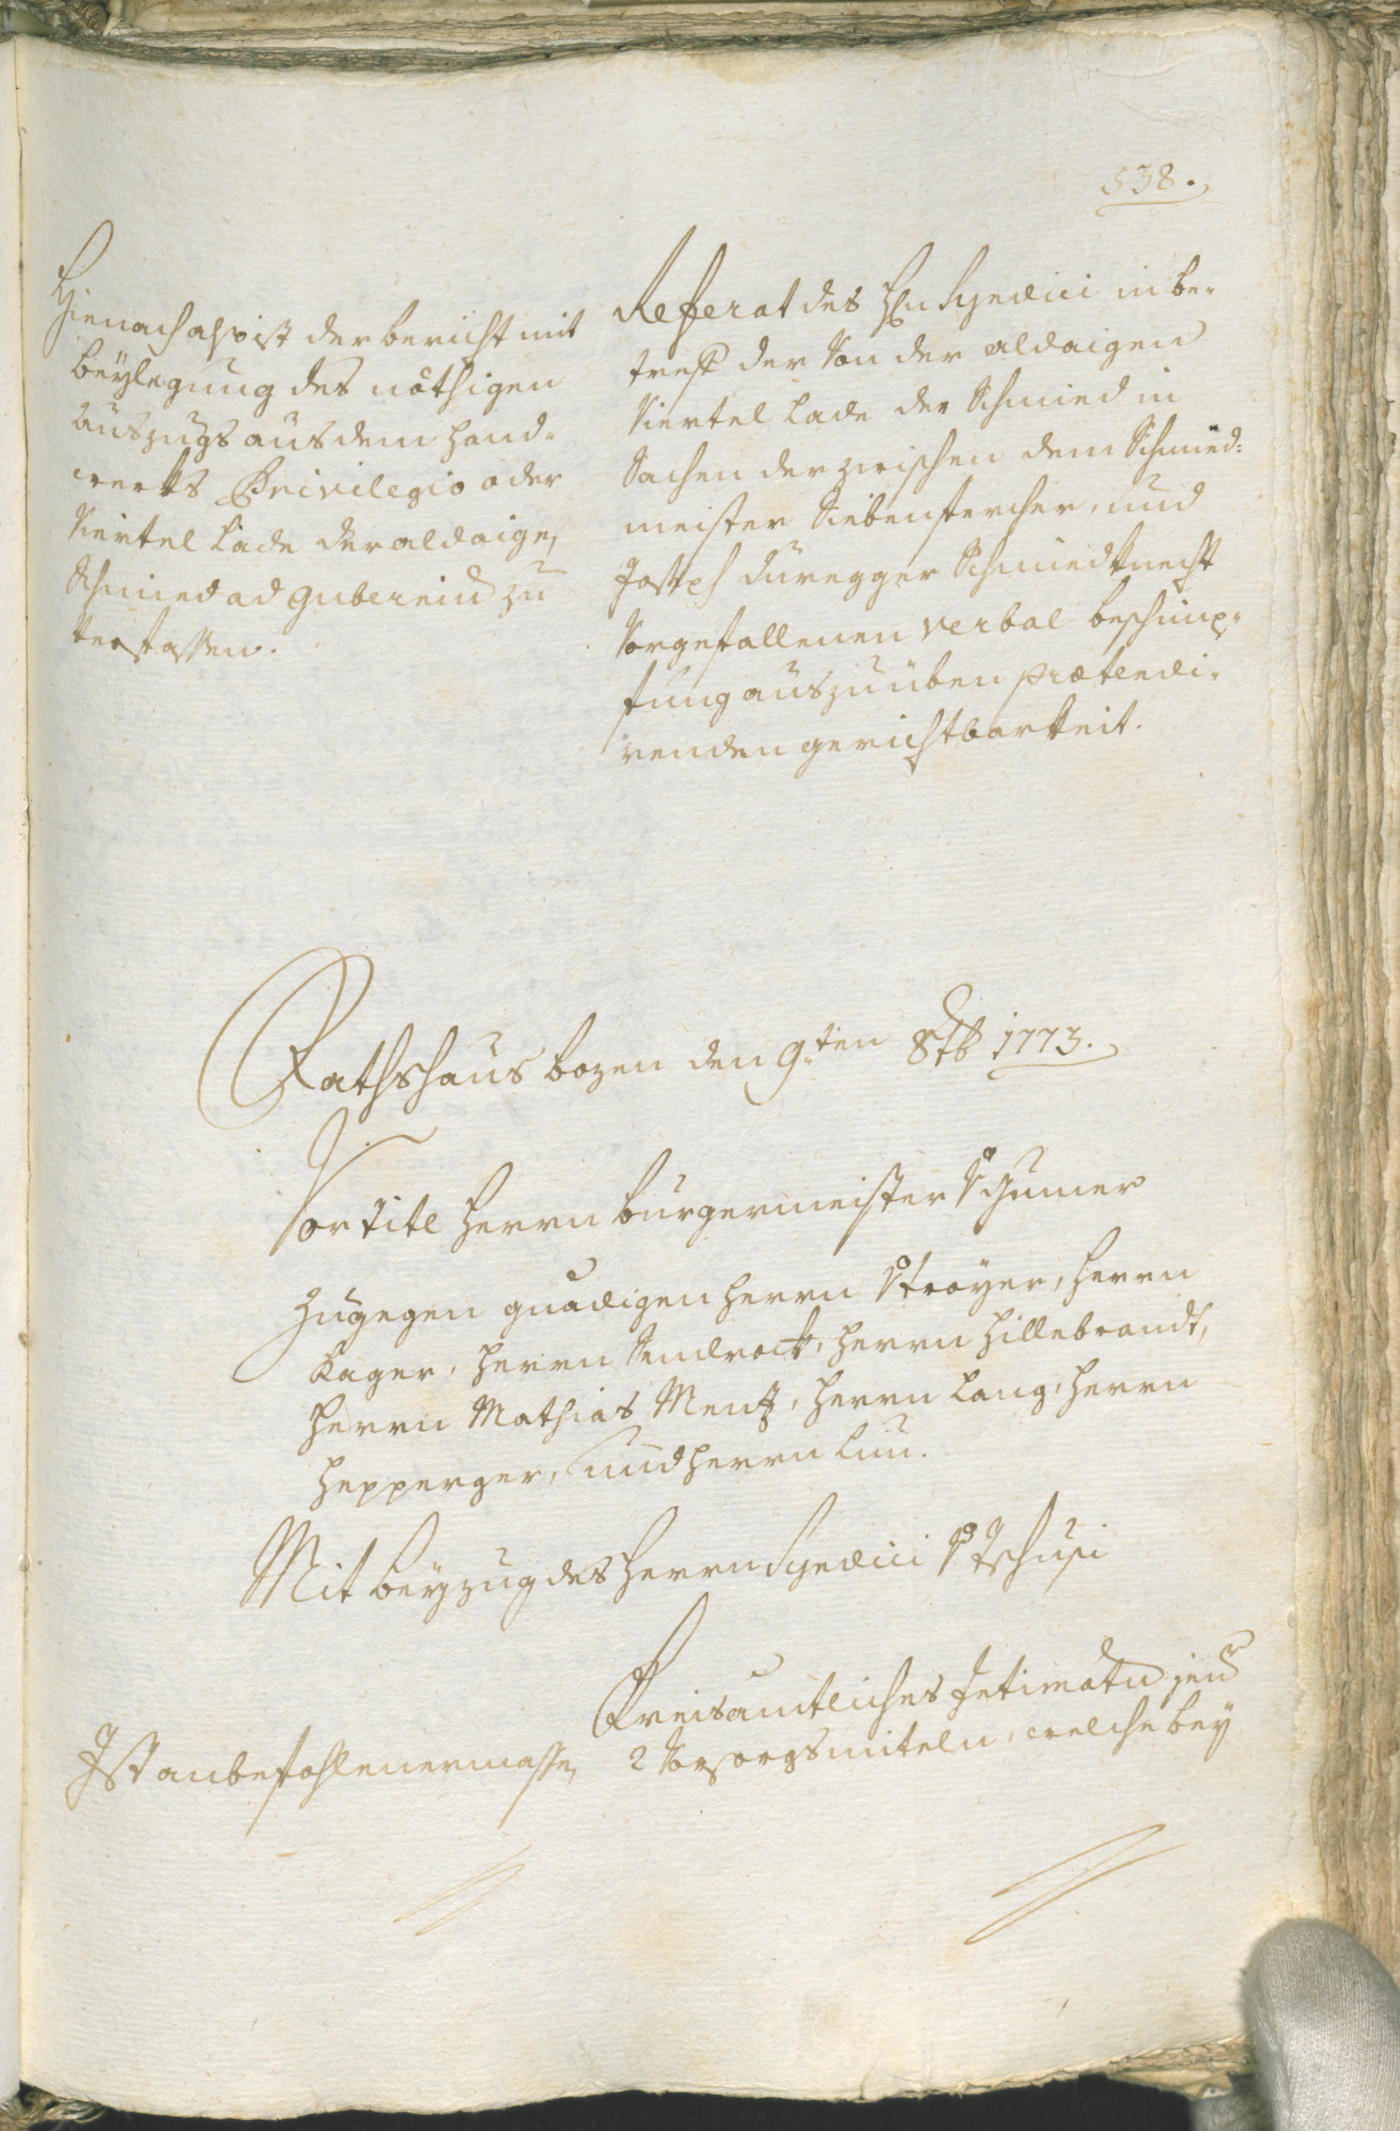 538.
Hienach also ist der bericht mit
beÿlegung des nöthigen
auszugs aus dem hand-
werks Privilegio oder
Viertel Lade der aldaigen
Schmied ad gubernium zu
verfassen.
Referat des Hrn Syndici in be-
tref der Von der aldaigen
Viertel Lade der Schmied in
Sachen der zwischen dem Schmied-
meister Siebenstercher, und
Joseph Düregger Schmiedknecht
Vorgefallenen verbal beschimp-
fung auszuüben prætendi-
renden gerichtbarkeit.
Rathshaus bozen den 9ten 8tb 1773.
Vor tite herrn burgermeister v gumer
Zugegen gnädigen herrn v troÿer, herrn
Kager, herrn Sendrock, herrn hillebrandt,
herrn Mathias Mentz, herrn Lang, herrn
hepperger, und herrn Lun.
Mit beÿzug des herrn Syndici v tschusi
Kreisämtliches Intimatum
Ist anbefohlenermassen
2 Vorsorgsmiteln, welche beÿ